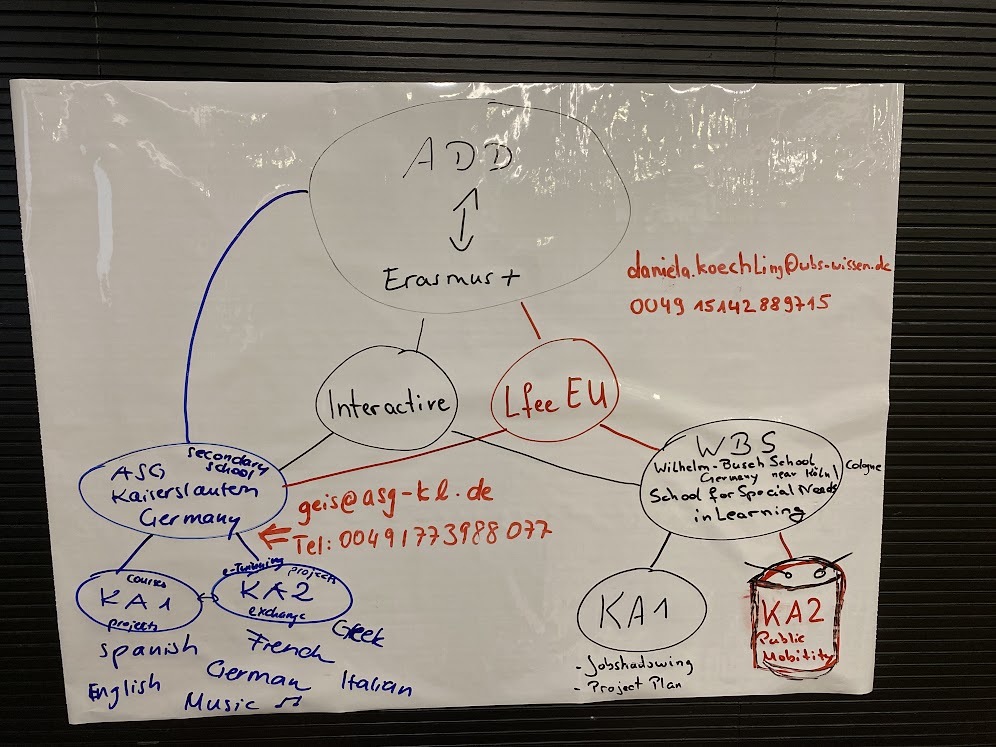 ADD
Erasmus +
daniela.koechling@wbs-wissen.de
0049 15142889715
Interactive
Lfee EU
ASG
secondary
school
Kaiserslautern
Germany
WBS
Wilhelm-Busch School
Germany near Köln/
Cologne
School for Special Needs
in Learning
geis@asg-kl.de
Tel: 00491773988 077
courses
KA1
projects
e-Twinning projects
KA2
exchange
Spanish
French
Greek
English
German
Italian
Music
KA1
- Jobshadowing
- Project Plan
KA2
Public
Mobitity